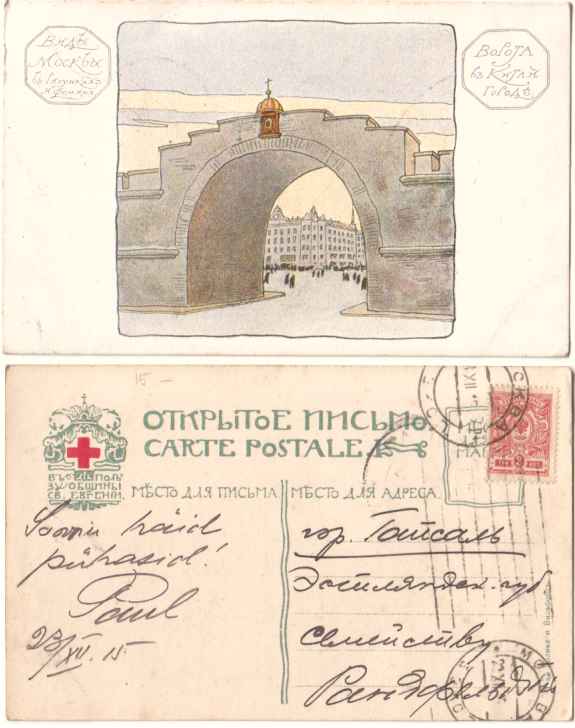 Виды
Москвы
въ рисункахъ
Ворота
въ Китай
городѣ.
15 –
ОТКРЫТОЕ ПИСЬМО.
CARTE POSTALE.
ВЪ ПОЛЬЗУ ОБЩИНЫ
СВ. ЕВГЕНІИ.
МѢСТО ДЛЯ ПИСЬМА
МѢСТО ДЛЯ АДРЕСА.
МѢСТО
ДЛЯ
МАРКИ
3
МОСКВА
Soovin häid
pühasid!
Paul
23/XII. 15
гор. Гапсаль
Эстляндск. губ
Семейству